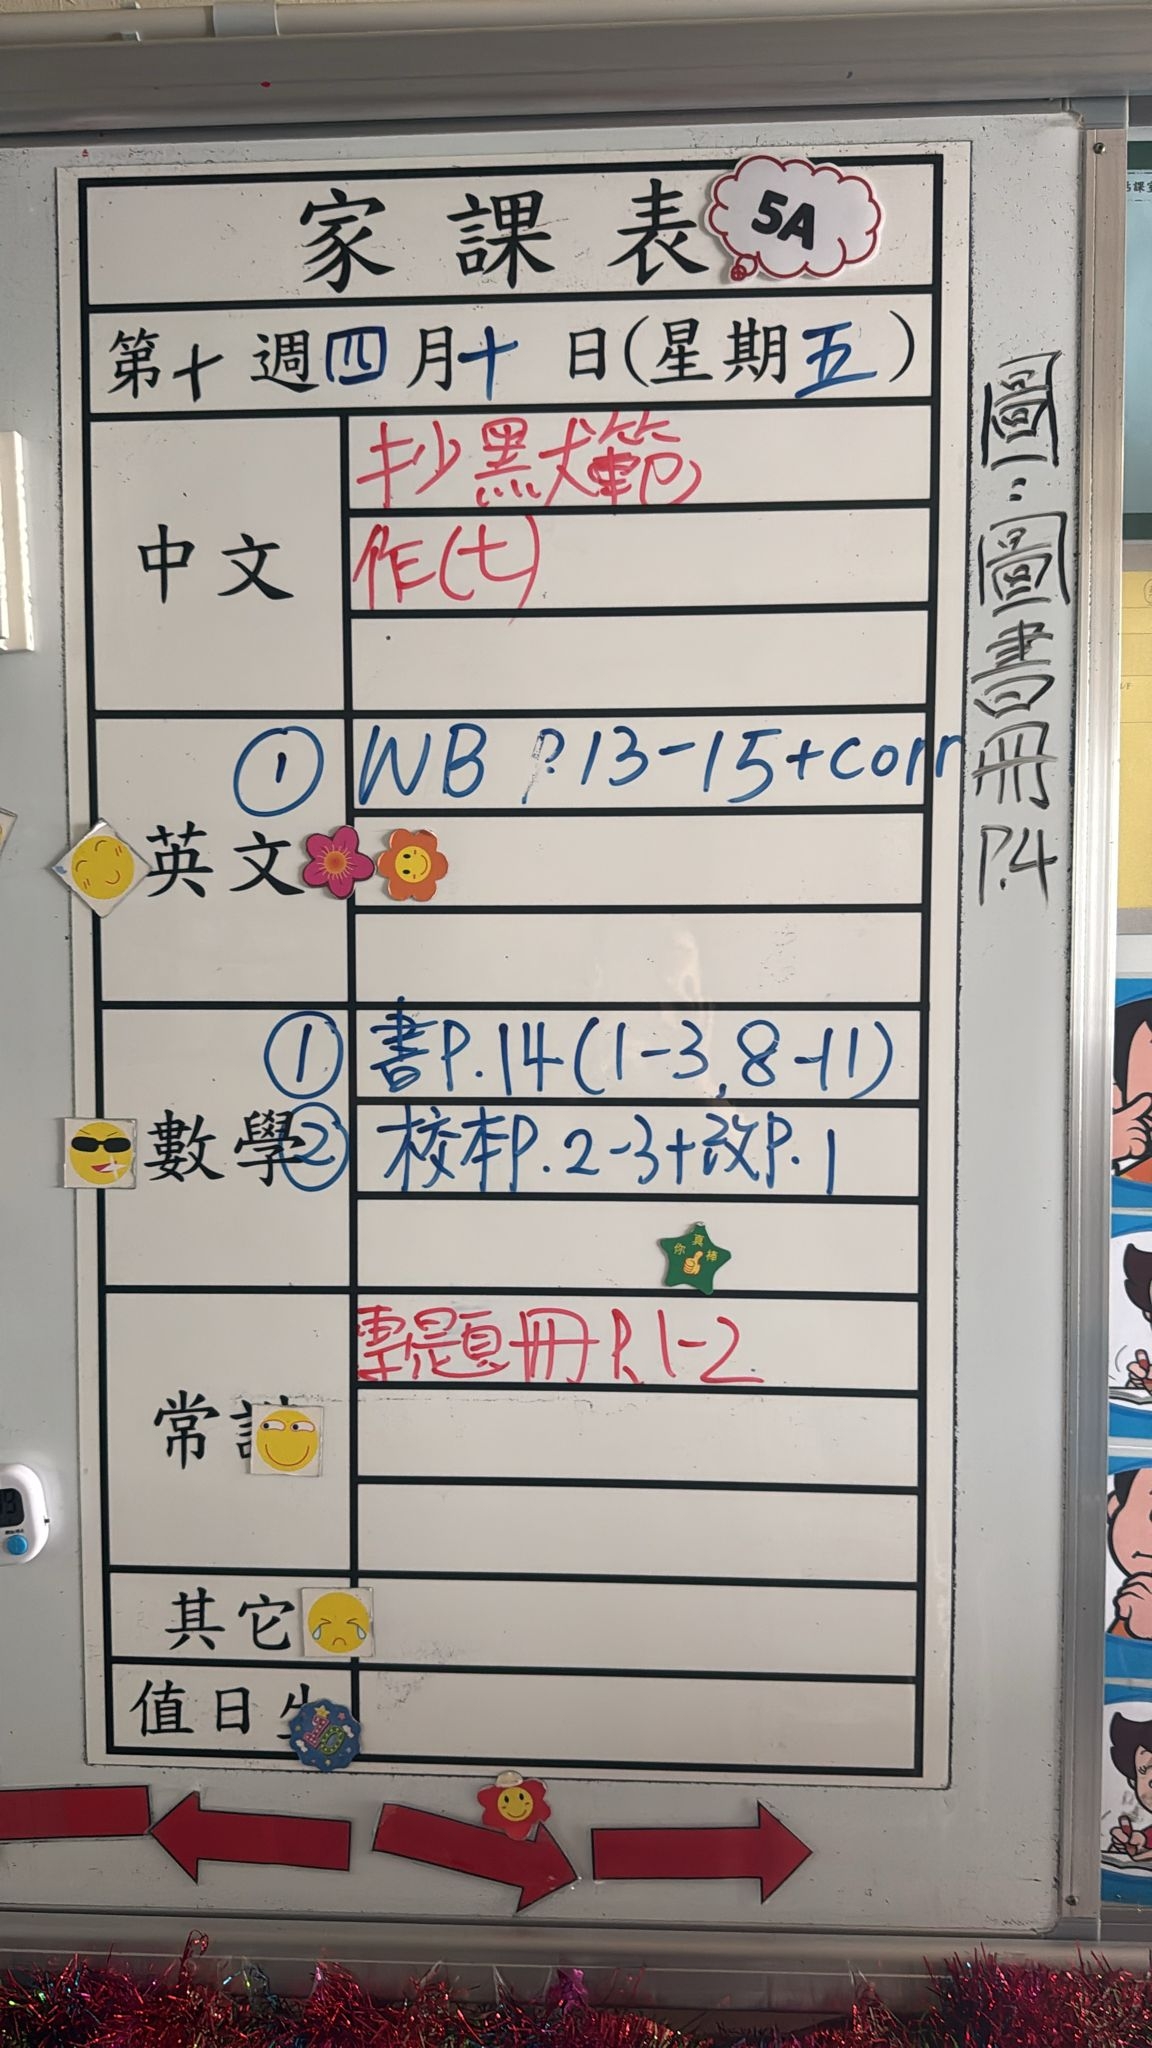 家課表 5A
第十週四月十日(星期五)
中文
抄默範
作(七)
英文
① WB P.13-15+corr
數學
① 書P.14(1-3,8-11)
② 校本P.2-3+改P.1
你真棒
常
專題冊P.1-2
其它
值日生
圖:圖書冊P.4